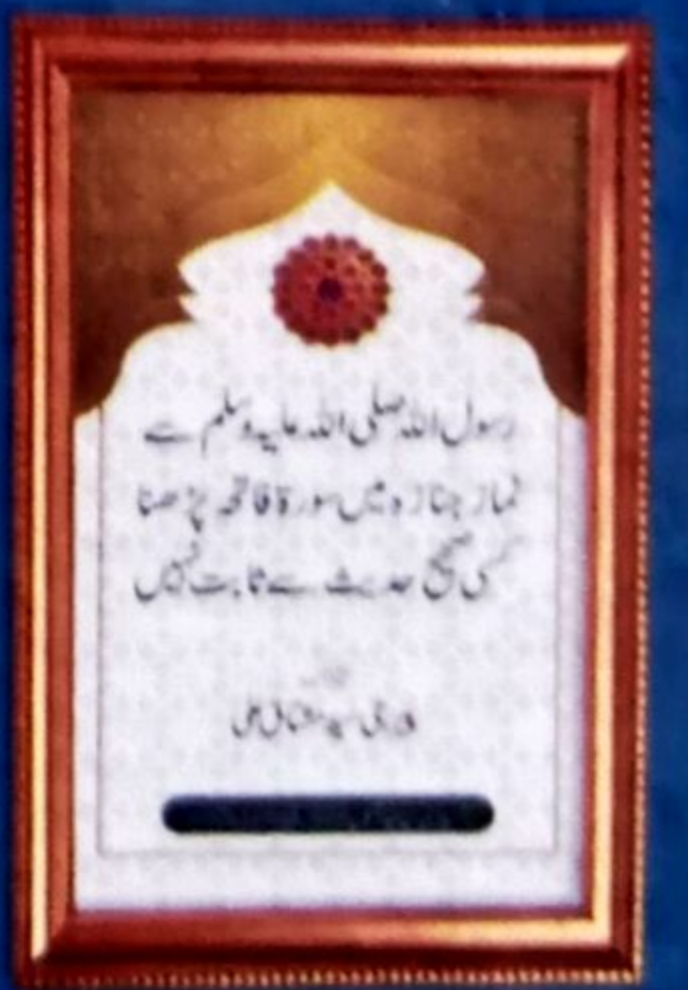 رسول اللہ صلی اللہ علیہ وسلم سے
نماز جنازہ میں سورۃ فاتحہ پڑھنا
کسی صحیح حدیث سے ثابت نہیں
سید مشتاق علی